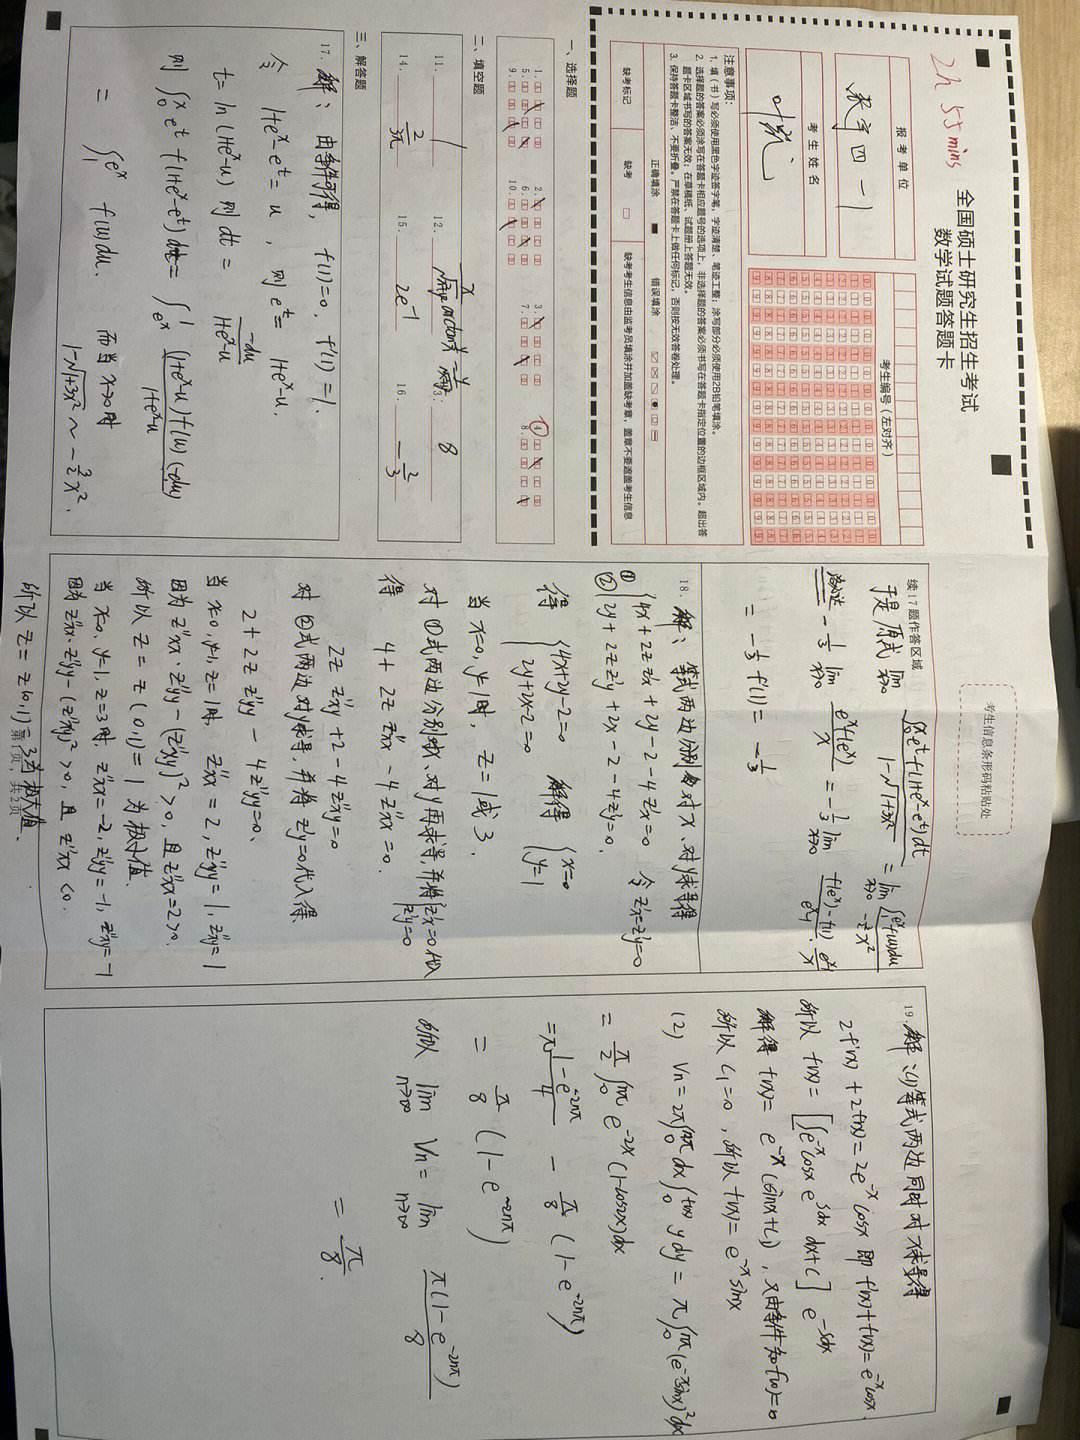 2h 55 mins
全国硕士研究生招生考试
数学试题答题卡
报考单位
数字四 一1
考生姓名
考生编号（左对齐）
注意事项：
1. 填（书）写必须使用黑色字迹签字笔，字迹清楚、笔迹工整；涂写部分必须使用2B铅笔填涂。
2. 选择题的答案必须涂写在答题卡相应题号的选项上，非选择题的答案必须书写在答题卡指定位置的边框区域内。超出答
题卡区域书写的答案无效；在草稿纸、试题册上答题无效。
3. 保持答题卡整洁，不要折叠。严禁在答题卡上做任何标记，否则按无效答卷处理。
正确填涂
错误填涂
缺考标记
缺考
缺考考生信息由监考员填涂并加盖缺考章，盖章不要遮盖考生信息
一、选择题
1.
2.
3.
4
5.
6.
7.
8.
9.
10.
二、填空题
11. 1
12.
13. 8
14. 2/3π
15. 2e^-1
16. -2/3
三、解答题
17. 解：由条件可得，f(1)=0，f'(1)=1.
令 1+e^x-e^t=u，则 e^t=1+e^x-u.
t=ln(1+e^x-u) 则 dt= -du/(1+e^x-u)
则 ∫₀^x e^t f(1+e^x-e^t)dt= ∫_{e^x}^1 (1+e^x-u)f(u)(-du)/(1+e^x-u)
= ∫₁^{e^x} f(u)du. 而当 x→0时 1-√(1+3x²) ~ -3/2 x².
续17题作答区域
考生信息条形码粘贴处
于是 原式 lim x→0 ∫₀^x e^t f(1+e^x-e^t)dt / (1-√(1+3x²)) = lim x→0 ∫₁^{e^x} f(u)du / (-3/2 x²)
-1/3 lim x→0 e^x f(e^x)/x = -1/3 lim x→0 (f(e^x)-f(1))/(e^x-1) · (e^x-1)/x
= -1/3 f'(1)= -1/3
18. 解：等式两边分别对x、对y求导得
① { 4x+2zz'x+2y-2-4z'x=0 令z'x=z'y=0
② 2y+2zz'y+2x-2-4z'y=0.
得 { 4x+2y-2=0 解得 { x=0
2y+2x-2=0 y=1
当 x=0,y=1时，z=1或3.
对①式两边分别对x、对y再求导，并将 { z'x=0 代入
z'y=0
得 4+2zz''xx-4z''xx=0.
2zz''xy+2-4z''xy=0
对②式两边对y求导，并将z'y=0代入得，
2+2zz''yy-4z''yy=0.
当x=0,y=1,z=1时，z''xx=2,z''yy=1,z''xy=1
因为z''xx·z''yy-(z''xy)²>0，且z''xx=2>0.
所以 z=z(0,1)=1为极小值.
当x=0,y=1,z=3时，z''xx=-2,z''yy=-1,z''xy=-1
因为z''xx·z''yy-(z''xy)²>0，且z''xx<0.
所以 z=z(0,1)=3为极大值.
第1页，共2页
19. 解：(1)等式两边同时对x求导得
2f'(x)+2f(x)=2e^-x cosx 即 f'(x)+f(x)=e^-x cosx.
所以 f(x)=[∫e^-x cosx e^∫dx dx+C] e^-∫dx
解得 f(x)=e^-x(sinx+C₁)，又由条件知f(0)=0
所以 C₁=0，所以f(x)=e^-x sinx
(2) Vn=2π∫₀^nπ dx∫₀^f(x) y dy=π∫₀^nπ (e^-x sinx)²dx
=π/2 ∫₀^nπ e^-2x(1-cos2x)dx
=π (1-e^-2nπ)/4 - π/8 (1-e^-2nπ)
=π/8 (1-e^-2nπ)
所以 lim n→∞ Vn= lim n→∞ π(1-e^-2nπ)/8
=π/8.